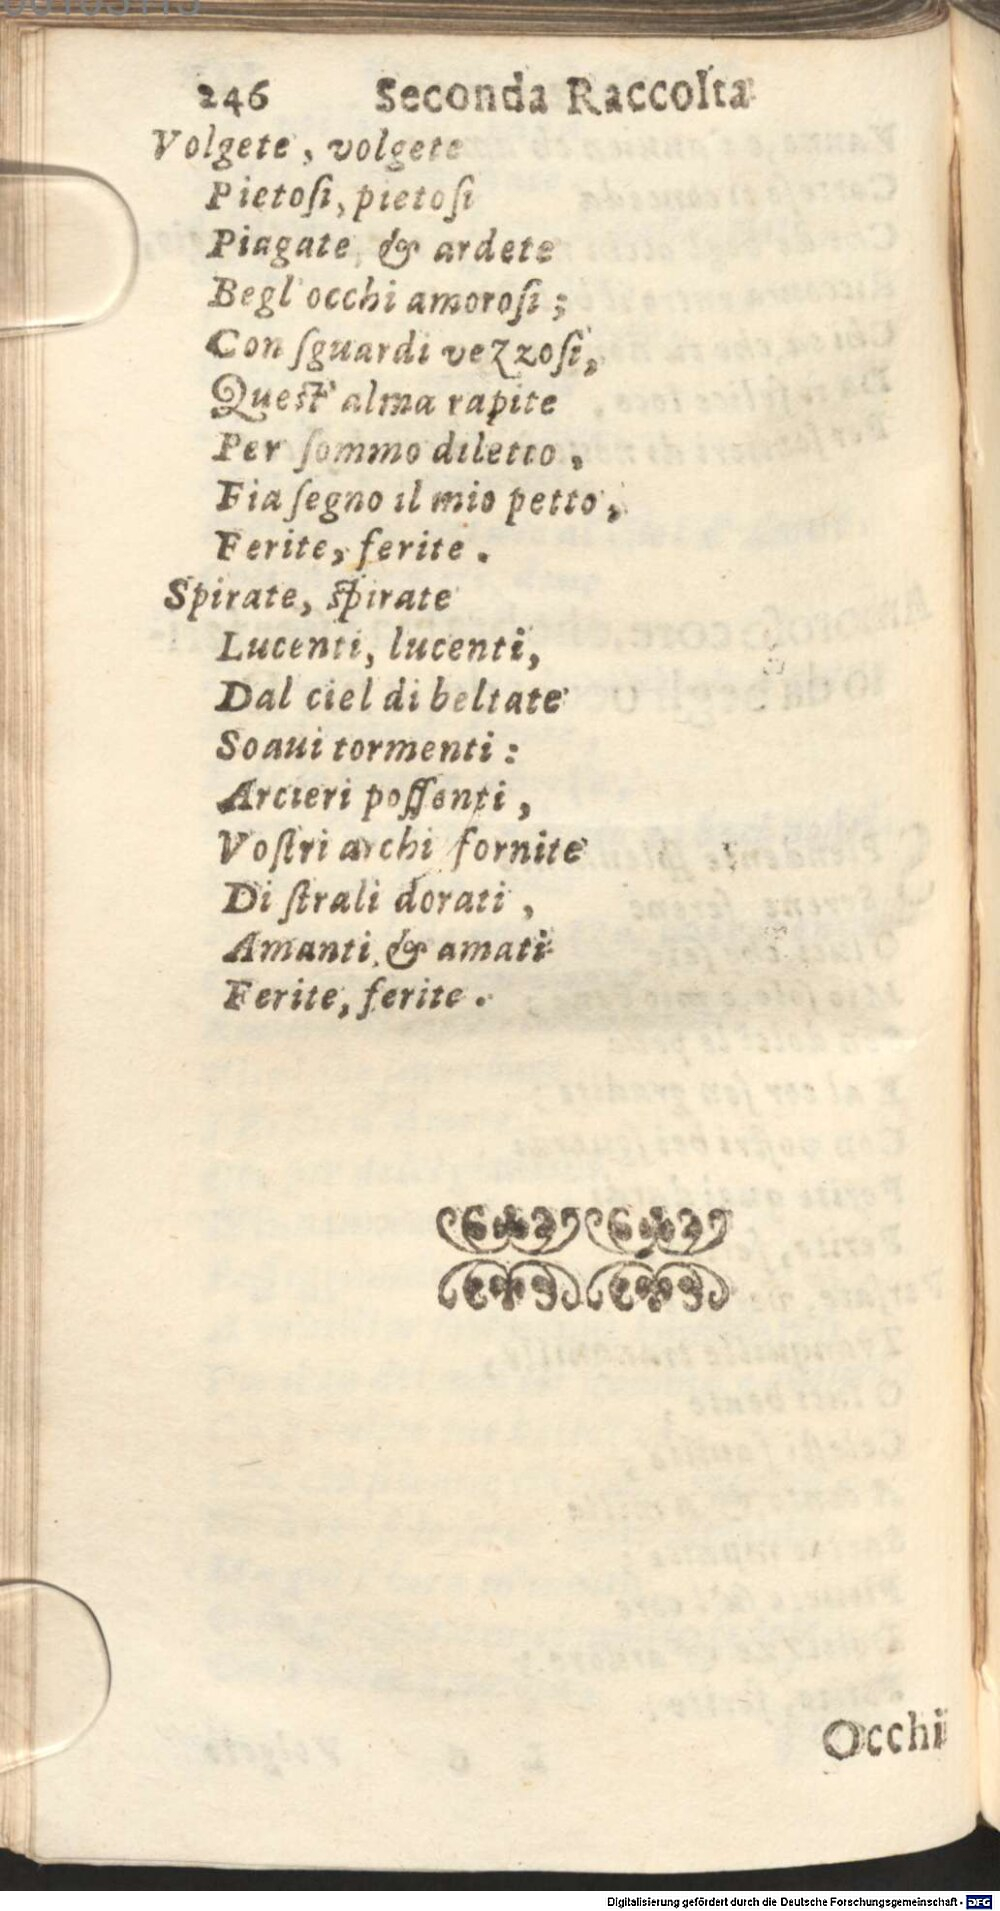 246 Seconda Raccolta
Volgete, volgete
Pietosi, pietosi
Piagate, & ardete
Begl'occhi amorosi;
Con sguardi vezzosi,
Quest' alma rapite
Per sommo diletto,
Fia segno il mio petto,
Ferite, ferite.
Spirate, spirate
Lucenti, lucenti,
Dal ciel di beltate
Soaui tormenti:
Arcieri possenti,
Vostri archi fornite
Di strali dorati,
Amanti, & amati
Ferite, ferite.
Occhi
Digitalisierung gefördert durch die Deutsche Forschungsgemeinschaft - DFG